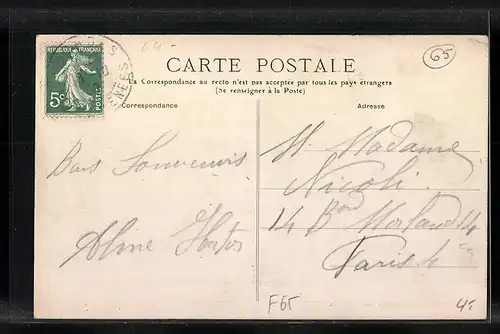 RÉPUBLIQUE FRANÇAISE
5c POSTES
65
CARTE POSTALE
La Correspondance au recto n'est pas acceptée par tous les pays étrangers
(Se renseigner à la Poste)
Correspondance
Adresse
Bons Souvenirs
Aline
M. Madame
Nicoli.
14 Bord Morland 14
Paris 4
F65